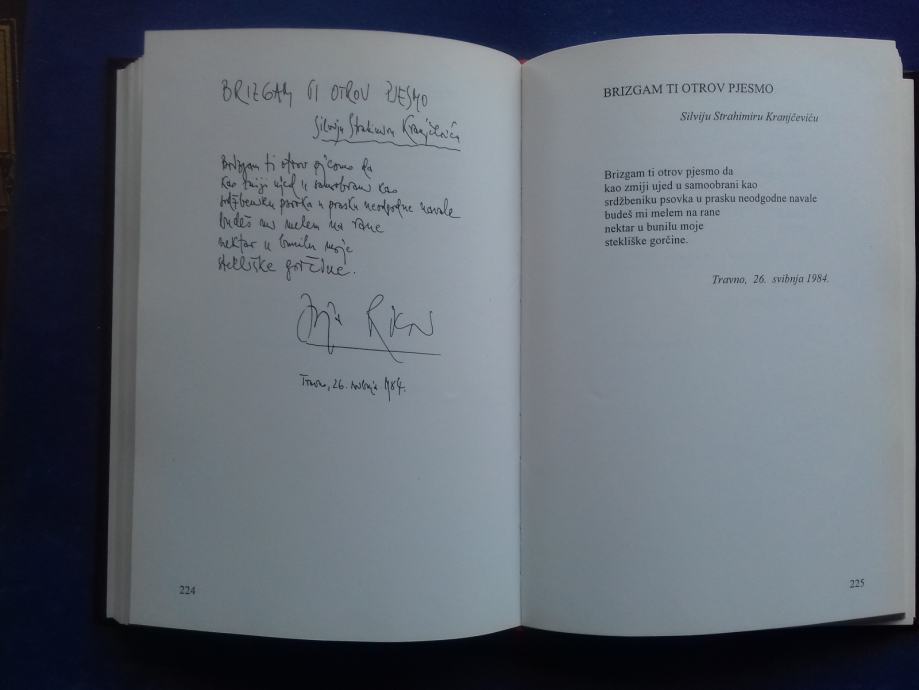 BRIZGAM TI OTROV PJESMO
Silviju Strahimiru Kranjčeviću
Brizgam ti otrov pjesmo da
kao zmiji ujed u samoobrani kao
srdžbeniku psovka u prasku neodgodne navale
budeš mi melem na rane
nektar u bunilu moje
stekliške gorčine.
Travno, 26. svibnja 1984.
224
BRIZGAM TI OTROV PJESMO
Silviju Strahimiru Kranjčeviću
Brizgam ti otrov pjesmo da
kao zmiji ujed u samoobrani kao
srdžbeniku psovka u prasku neodgodne navale
budeš mi melem na rane
nektar u bunilu moje
stekliške gorčine.
Travno, 26. svibnja 1984.
225